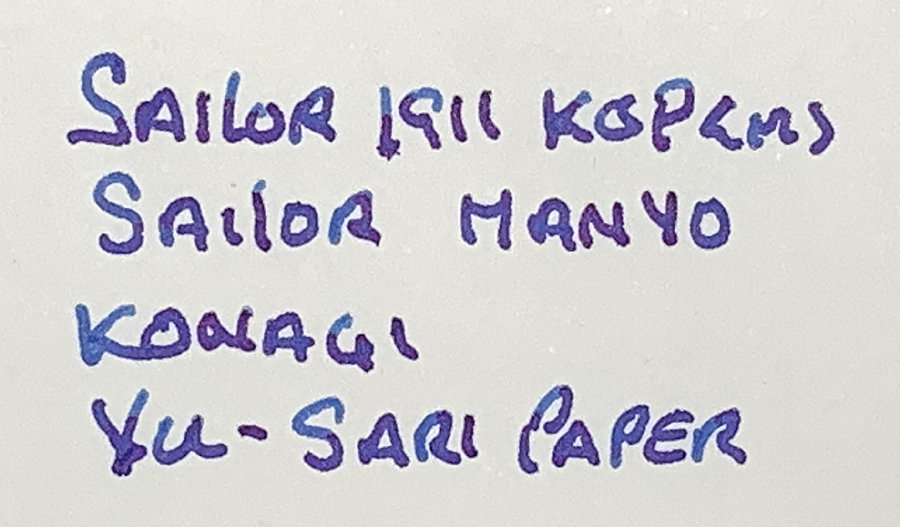 SAILOR 1911 KOP (M)
SAILOR MANYO
KONAGI
YU-SARI PAPER